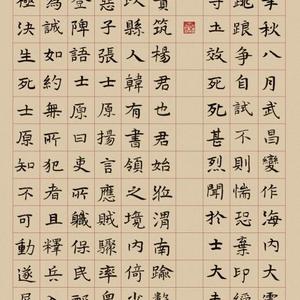 秋八月武昌變作海內大
跳踉爭自試不則惴恐棄印綬
守土效死死甚烈聞於士大夫
貴筑楊君也君始涖渭南踰數
縣人韓有書領之境內倚
子張士原揚言應之驟率
登陴語士原曰吏所職保民
為誠如約無所犯者且釋兵入
極決生死士原知不可動遂